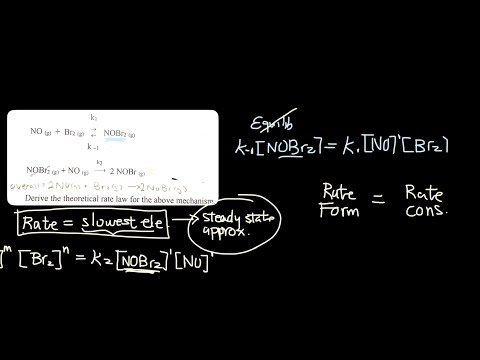 k₁
NO (g) + Br₂ (g) ⇄ NOBr₂ (g)
k₋₁
k₂
NOBr₂ (g) + NO (g) → 2 NOBr (g)
overall = 2NO(g) + Br₂(g) → 2NOBr(g)
Derive the theoretical rate law for the above mechanism
Rate = slowest ele → steady state
approx.
]ᵐ [Br₂]ⁿ = K₂ [NOBr₂]¹ [NO]¹
Equilib
K₋₁ [NOBr₂] = K₁ [NO]¹ [Br₂]
Rate Form = Rate cons.